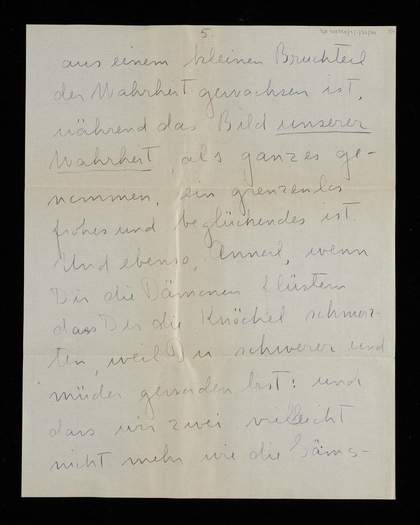 5.
aus einem kleinen Bruchteil
der Wahrheit gewachsen ist,
während das Bild unserer
Wahrheit, als ganzes ge-
nommen, ein grenzenlos
frohes und beglückendes ist.
Und ebenso, wenn
Dir die Dämonen flüstern
dass Dir die Knöchel schmerz-
ten, weil Du schwerer und
müder geworden bist: und
dass wir zwei vielleicht
nicht mehr wie die Gäms-